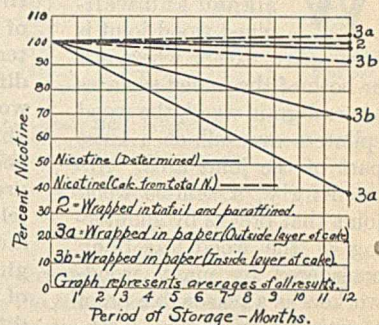 110
100
90
80
70
60
50
40
30
20
10
0
Percent Nicotine.
3a
2
3b
3b
3a
Nicotine (Determined)
Nicotine (Calc. from total N.)
2 = Wrapped in tinfoil and paraffined.
3a = Wrapped in paper (Outside layer of cake)
3b = Wrapped in paper (Inside layer of cake).
Graph represents averages of all results.
1 2 3 4 5 6 7 8 9 10 11 12
Period of Storage - Months.